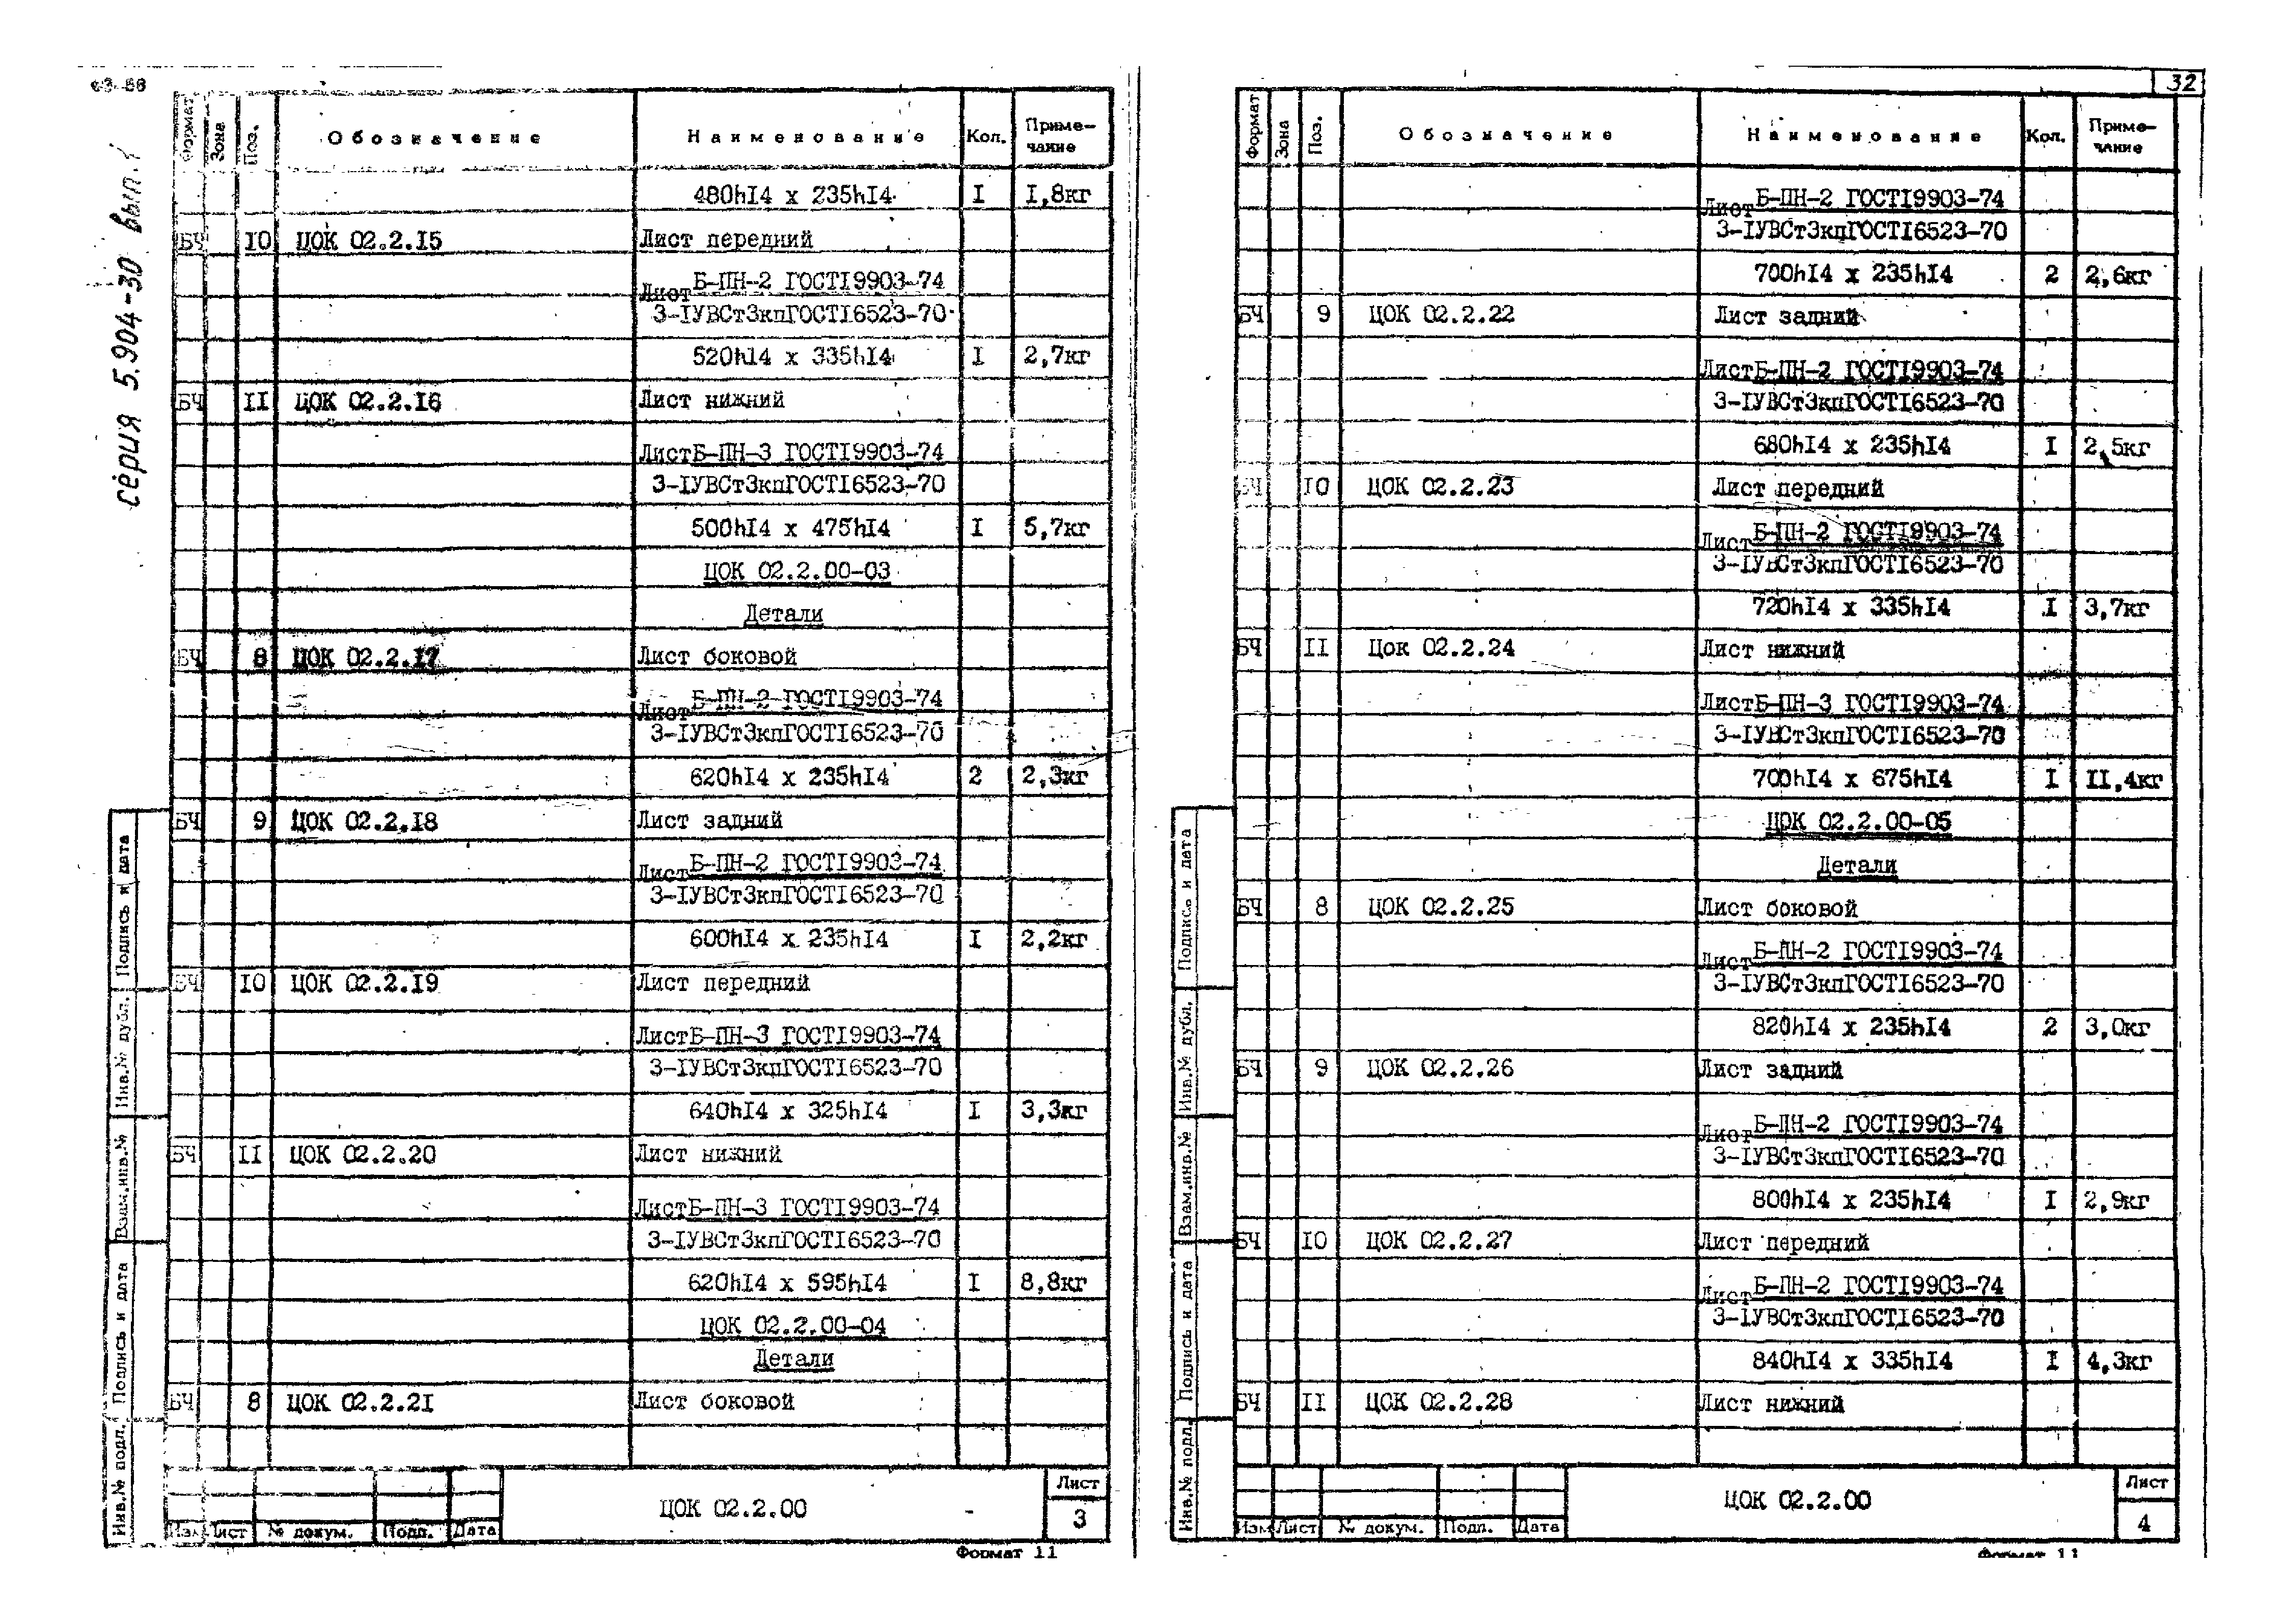 серия 5.904-30 вып.1
Формат Зона Поз. Обозначение Наименование Кол. Приме-
чание
480hI4 x 235hI4 I I,8кг
БЧ IO ЦОК 02.2.I5 Лист передний
Лист Б-ПН-2 ГОСТI9903-74
3-IУВСт3кпГОСТI6523-70
520hI4 x 335hI4 I 2,7кг
БЧ II ЦОК 02.2.I6 Лист нижний
Лист Б-ПН-3 ГОСТI9903-74
3-IУВСт3кпГОСТI6523-70
500hI4 x 475hI4 I 5,7кг
ЦОК 02.2.00-03
Детали
БЧ 8 ЦОК 02.2.I7 Лист боковой
Лист Б-ПН-2 ГОСТI9903-74
3-IУВСт3кпГОСТI6523-70
620hI4 x 235hI4 2 2,3кг
БЧ 9 ЦОК 02.2.I8 Лист задний
Лист Б-ПН-2 ГОСТI9903-74
3-IУВСт3кпГОСТI6523-70
600hI4 x 235hI4 I 2,2кг
БЧ IO ЦОК 02.2.I9 Лист передний
Лист Б-ПН-3 ГОСТI9903-74
3-IУВСт3кпГОСТI6523-70
640hI4 x 325hI4 I 3,3кг
БЧ II ЦОК 02.2.20 Лист нижний
Лист Б-ПН-3 ГОСТI9903-74
3-IУВСт3кпГОСТI6523-70
620hI4 x 595hI4 I 8,8кг
ЦОК 02.2.00-04
Детали
БЧ 8 ЦОК 02.2.2I Лист боковой
Подпись и дата
Инв.№ дубл.
Взам.инв.№
Подпись и дата
Инв.№ подл.
Изм Лист № докум. Подп. Дата
ЦОК 02.2.00
Лист
3
Формат 11
32
Формат Зона Поз. Обозначение Наименование Кол. Приме-
чание
Лист Б-ПН-2 ГОСТI9903-74
3-IУВСт3кпГОСТI6523-70
700hI4 x 235hI4 2 2,6кг
БЧ 9 ЦОК 02.2.22 Лист задний
Лист Б-ПН-2 ГОСТI9903-74
3-IУВСт3кпГОСТI6523-70
680hI4 x 235hI4 I 2,5кг
БЧ IO ЦОК 02.2.23 Лист передний
Лист Б-ПН-2 ГОСТI9903-74
3-IУВСт3кпГОСТI6523-70
720hI4 x 335hI4 I 3,7кг
БЧ II Цок 02.2.24 Лист нижний
Лист Б-ПН-3 ГОСТI9903-74
3-IУВСт3кпГОСТI6523-70
700hI4 x 675hI4 I II,4кг
ЦОК 02.2.00-05
Детали
БЧ 8 ЦОК 02.2.25 Лист боковой
Лист Б-ПН-2 ГОСТI9903-74
3-IУВСт3кпГОСТI6523-70
820hI4 x 235hI4 2 3,0кг
БЧ 9 ЦОК 02.2.26 Лист задний
Лист Б-ПН-2 ГОСТI9903-74
3-IУВСт3кпГОСТI6523-70
800hI4 x 235hI4 I 2,9кг
БЧ IO ЦОК 02.2.27 Лист передний
Лист Б-ПН-2 ГОСТI9903-74
3-IУВСт3кпГОСТI6523-70
840hI4 x 335hI4 I 4,3кг
БЧ II ЦОК 02.2.28 Лист нижний
Подпись и дата
Инв.№ дубл.
Взам.инв.№
Подпись и дата
Инв.№ подл.
Изм Лист № докум. Подп. Дата
ЦОК 02.2.00
Лист
4
Формат 11